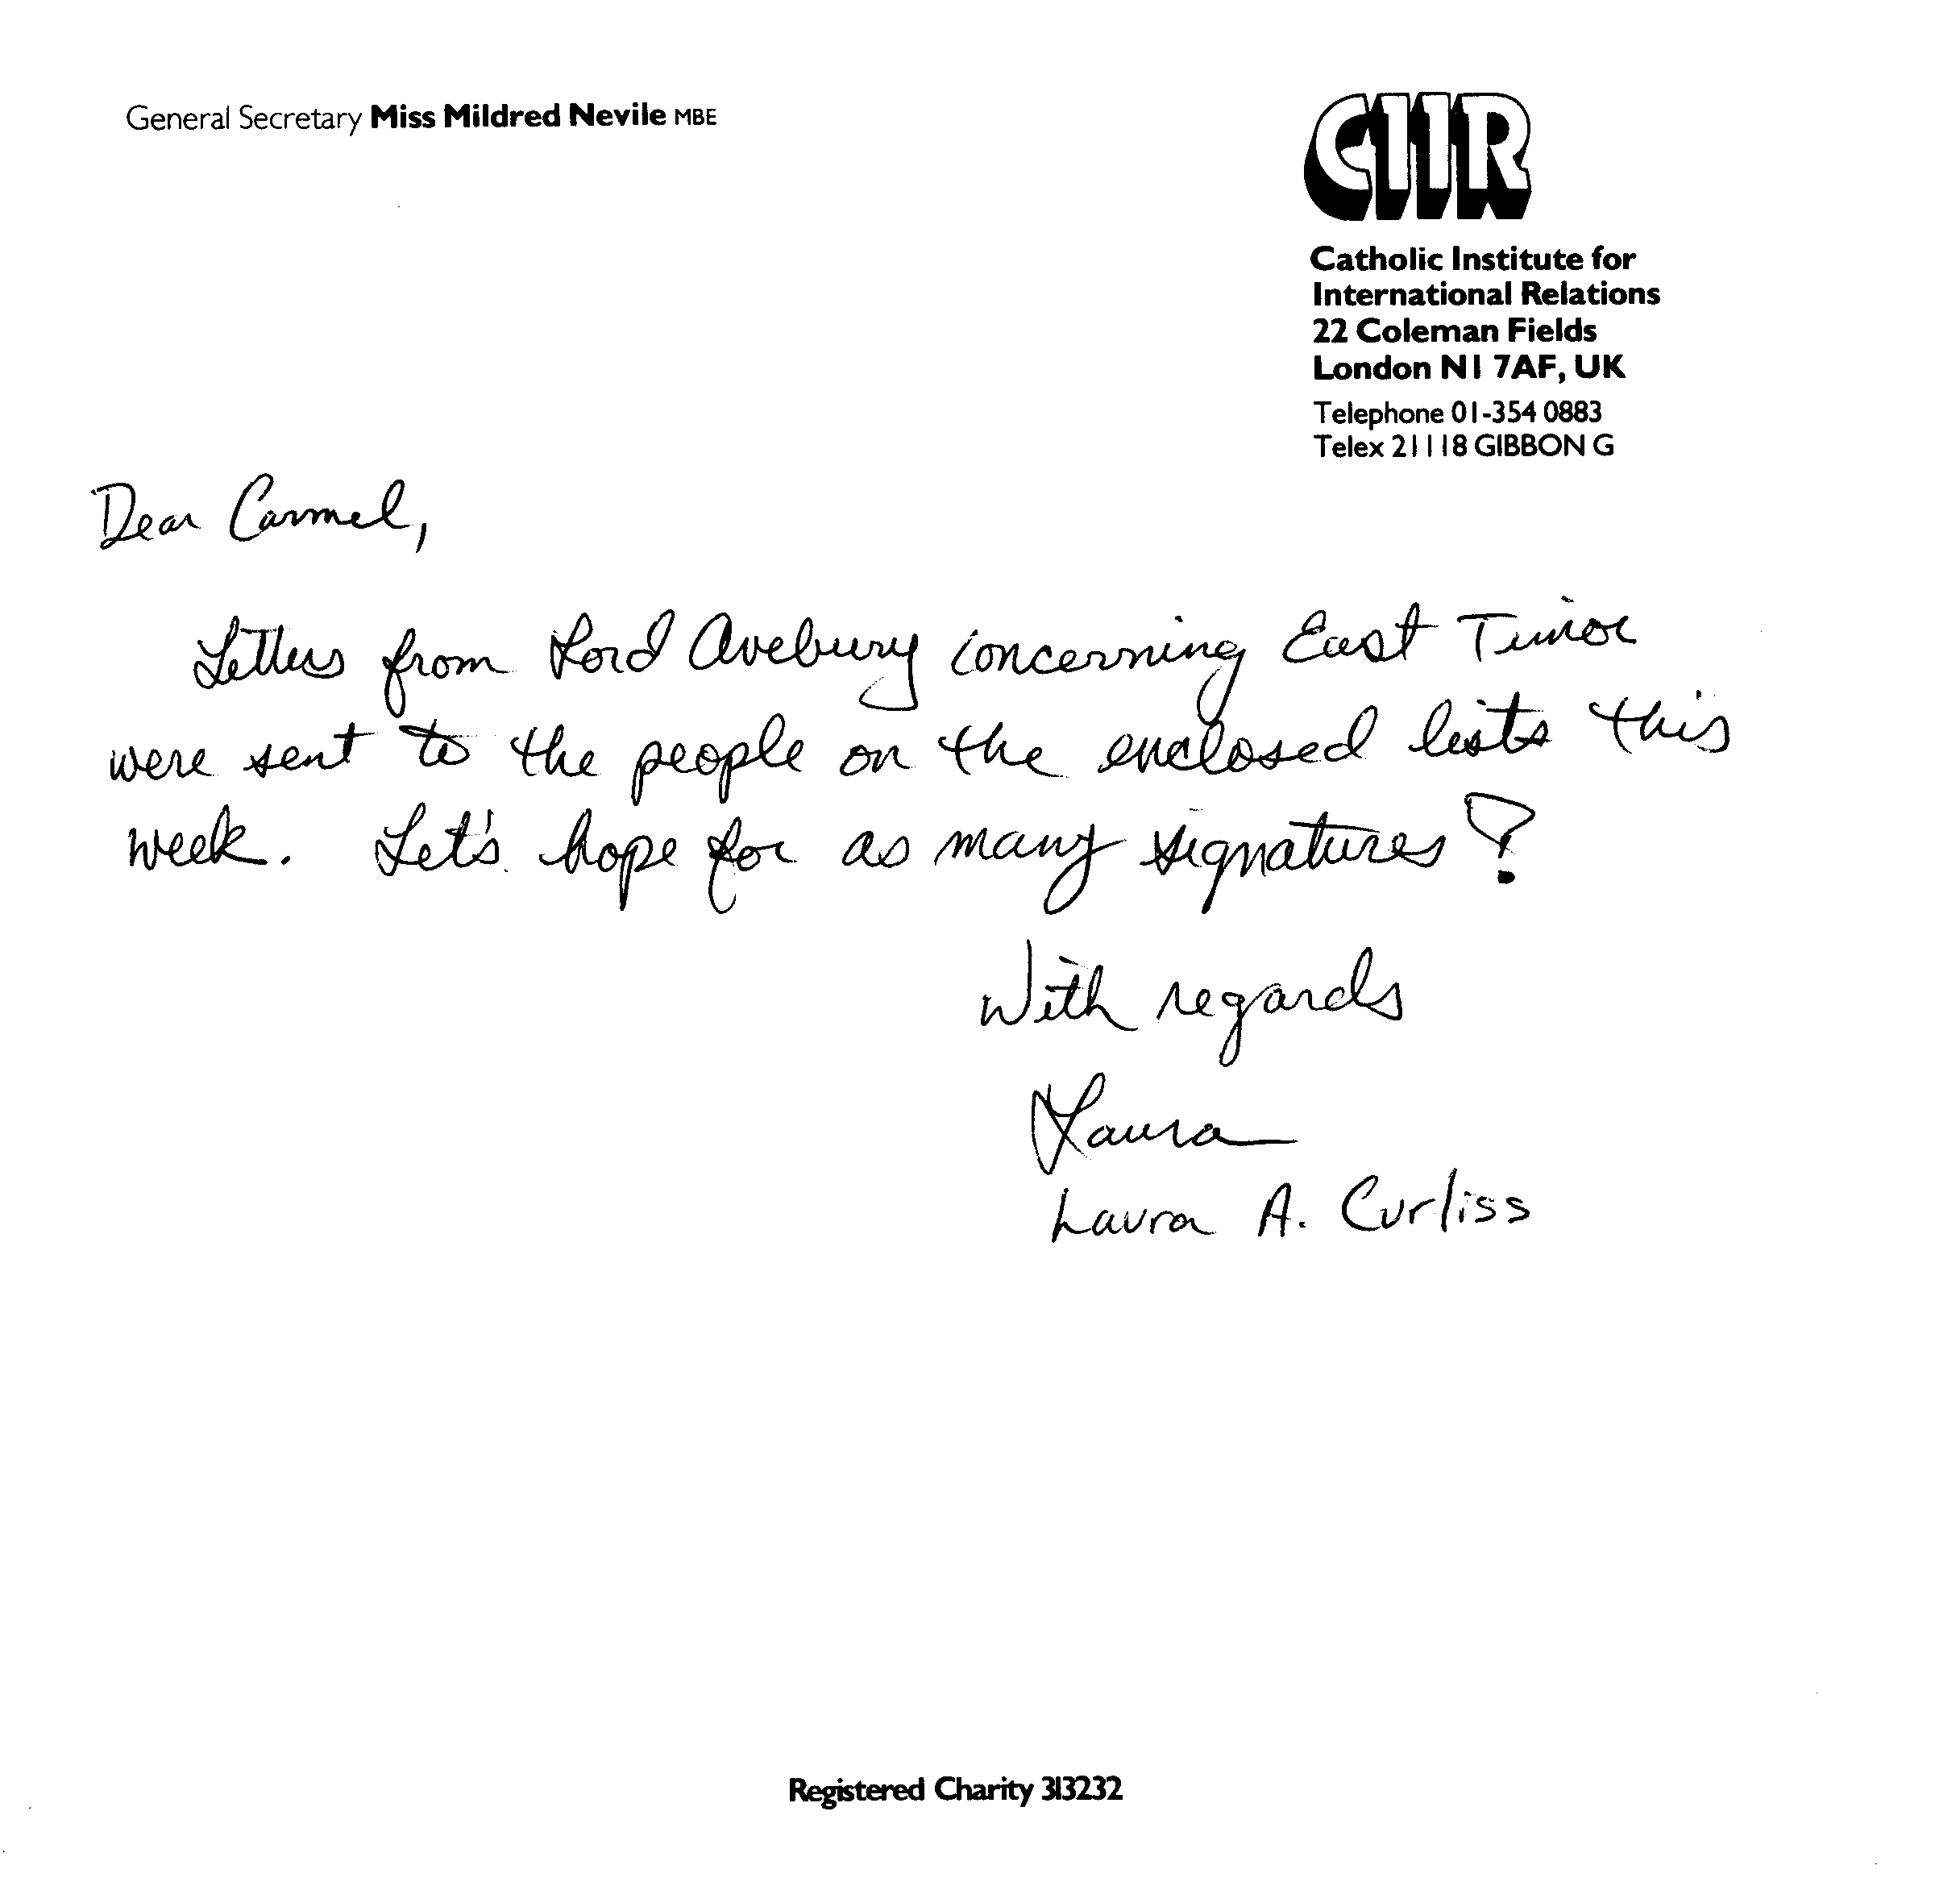 General Secretary Miss Mildred Nevile MBE
CIIR
Catholic Institute for
International Relations
22 Coleman Fields
London N1 7AF, UK
Telephone 01-354 0883
Telex 21118 GIBBON G
Dear Carmel,
Letters from Lord Avebury concerning East Timor
were sent to the people on the enclosed lists this
week. Let's hope for as many signatures!
With regards
Laura
Laura A. Curliss
Registered Charity 313232